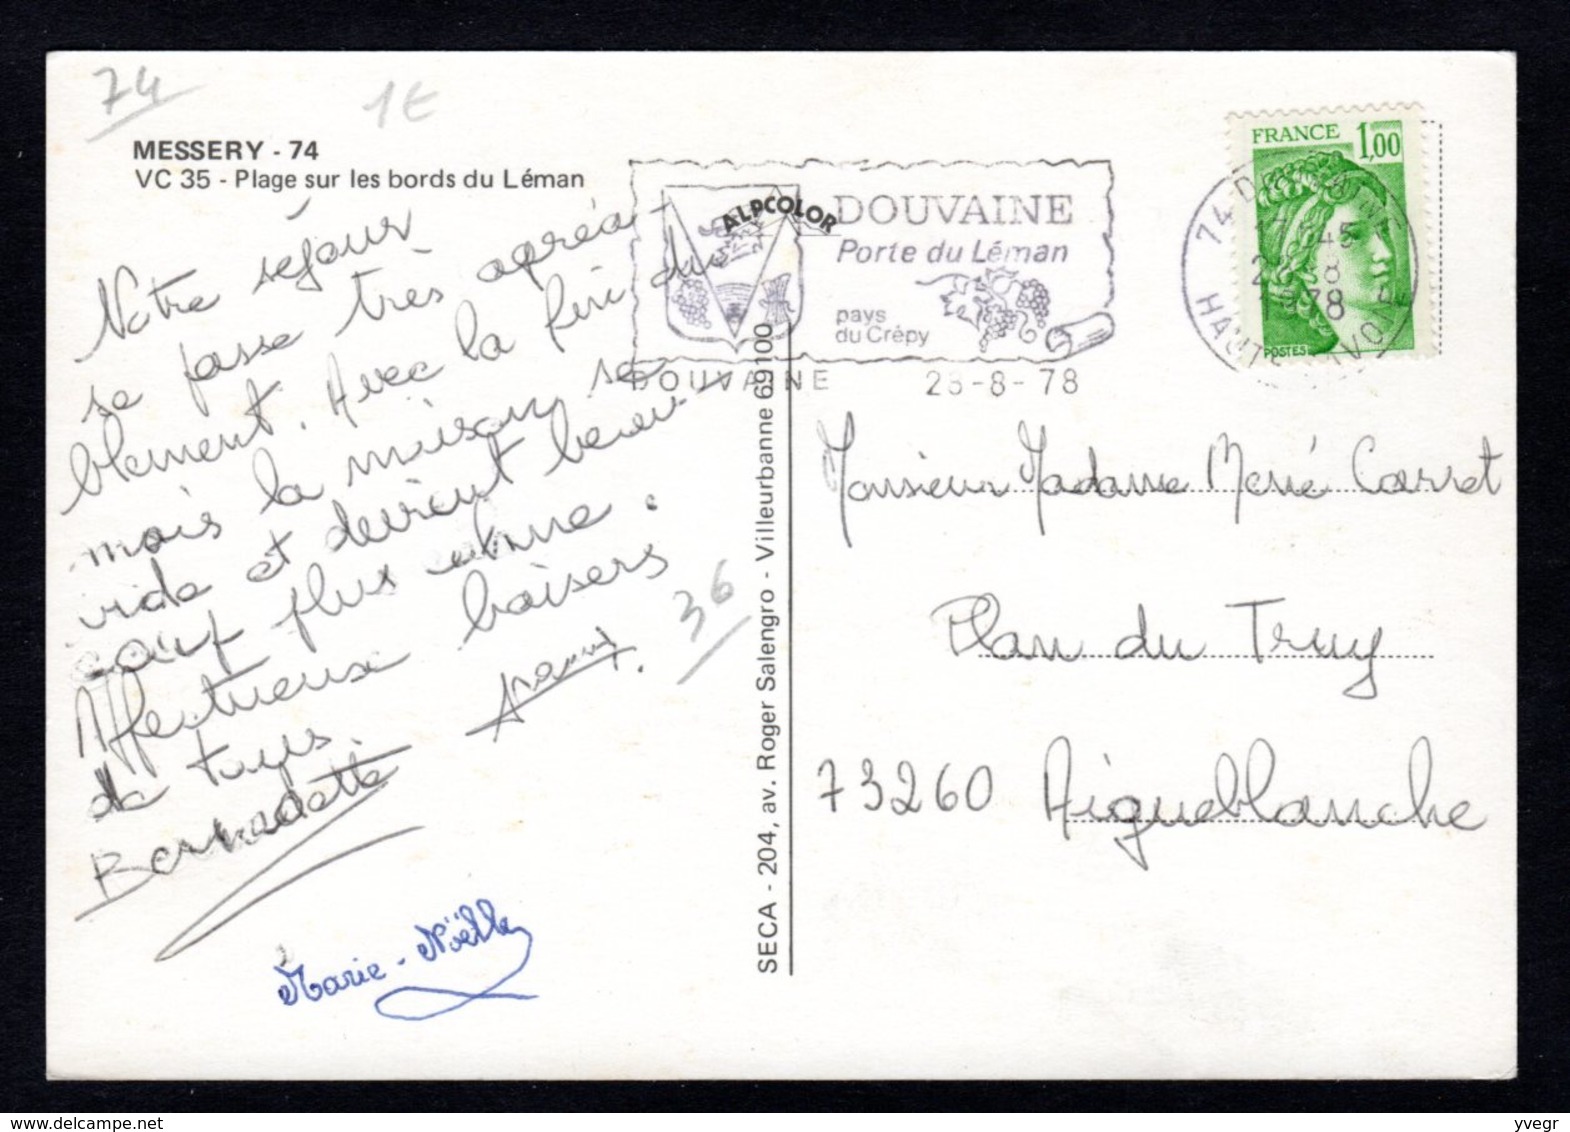 74
1€
MESSERY - 74
VC 35 - Plage sur les bords du Léman
Notre séjour
se passe très agréa
blement. Avec la fin du
mois la maison se
vide et devient beau-
coup plus calme.
Affectueuse baisers
de tous.
Bernadette
36
Marie-Noëlle
SECA - 204, av. Roger Salengro - Villeurbanne 69100
ALPCOLOR
DOUVAINE
Porte du Léman
pays
du Crépy
DOUVAINE 28-8-78
FRANCE 1,00
POSTES
74 DOUVAINE
1978
HAUTE SAVOIE
Monsieur Madame Carret
Plan du Truy
73260 Aigueblanche
yvegr